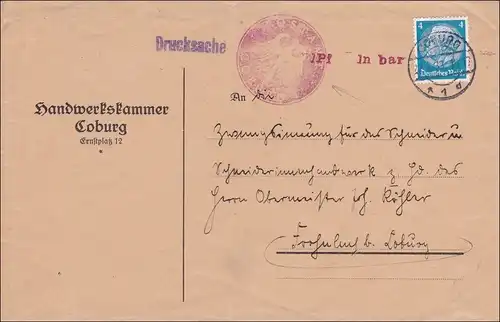 Drucksache
Pf In bar
4
COBURG
Deutsches Reich
Handwerkskammer
Coburg
Ernstplatz 12
An die
Zwangsinnung für das Schneider u
Schneiderinnenhandwerk z. Hd. des
Herrn Obermeister Joh. Köhler
Frohnlach b. Coburg